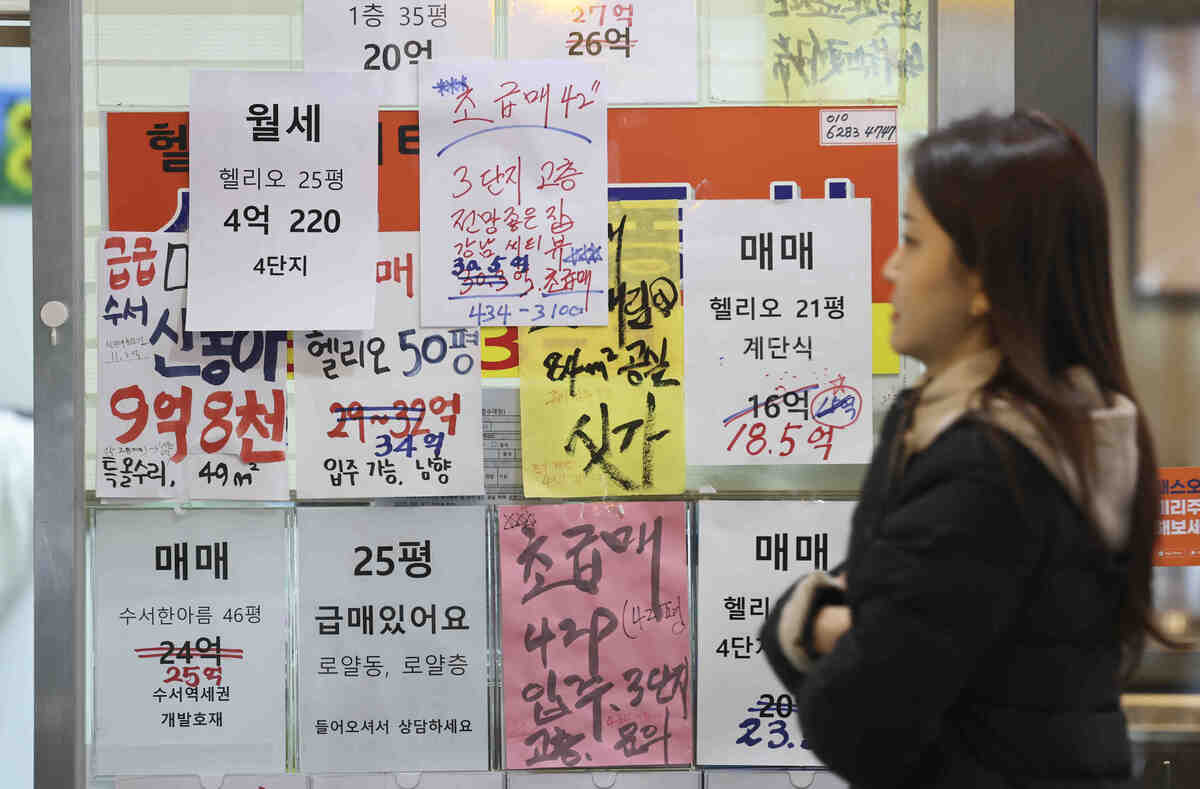 1층 35평
20억
27억
26억
010
6283 4747
월세
헬리오 25평
4억 220
4단지
초급매 42"
3단지 고층
전망좋은 집
강남 씨티 뷰
30.5억
초급매
434-3100
매매
헬리오 21평
계단식
16억
18.5억
급급
수서
신동아
9억8천
특올수리, 49m²
헬리오 50평
29~32억
34억
입주 가능, 남향
84m² 공실
싯가
매매
수서한아름 46평
24억
25억
수서역세권
개발호재
25평
급매있어요
로얄동, 로얄층
들어오셔서 상담하세요
초급매
42P (42평
입주. 3단지
고층. 문의
매매
헬리
4단지
20
23.